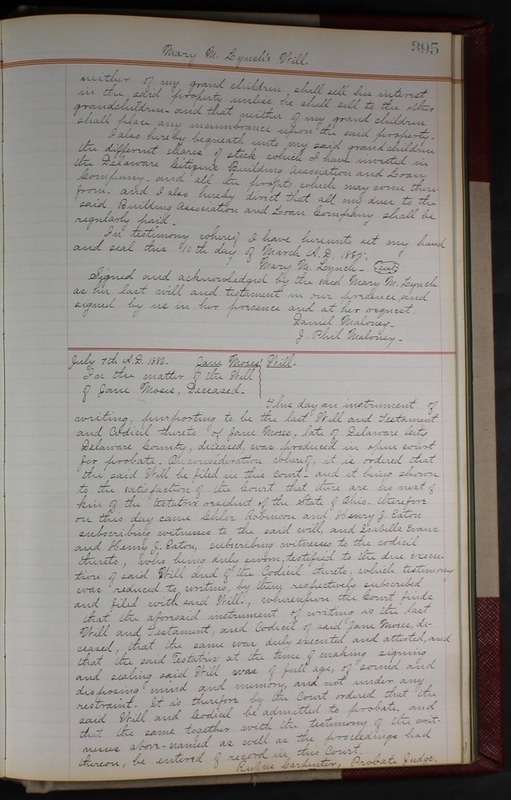 395
Mary M. Lynch's Will.
neither of my grand children shall sell his interest
in the said property unless he shall sell to the other
grandchildren and that neither of my grand children
shall place any incumbrance upon the said property.
I also hereby bequeath unto my said grandchildren
the different shares of stock which I have invested in
the Delaware Citizens Building Association and Loan
Company. and all the profits which may come there
from. and I also hereby direct that all my dues to the
said Building Association and Loan Company shall be
regularly paid.
In testimony whereof I have hereunto set my hand
and seal this 10th day of March A.D. 1885.
Mary M. Lynch. Seal
Signed and acknowledged by the said Mary M. Lynch
as her last will and testament in our presence, and
signed by us in her presence and at her request.
Daniel Maloney.
J. Phil Maloney.
July 7th A.D. 1886. Jane Moses' Will.
In the matter of the Will
of Jane Moses, Deceased.
This day an instrument of
writing, purporting to be the last Will and Testament
and Codicil thereto of Jane Moses, late of Delaware City
Delaware County, deceased, was produced in open court
for probate. On consideration whereof, it is ordered that
the said Will be filed in this Court. and it being shown
to the satisfaction of the Court that there are no next of
kin of the testatrix resident of the State of Ohio. therefore
on this day came Chloe Robinson and Henry J. Eaton
subscribing witnesses to the said will and Isabella Evans
and Henry J. Eaton, subscribing witnesses to the codicil
thereto, who being duly sworn, testified to the due execu-
tion of said Will and of the Codicil thereto, which testimony
was reduced to writing, by them respectively subscribed
and filed with said Will., whereupon the Court finds
that the aforesaid instrument of writing is the last
Will and Testament, and Codicil of said Jane Moses, de-
ceased, that the same was duly executed and attested, and
that the said Testatrix at the time of making signing
and sealing said Will was of full age, of sound and
disposing mind and memory, and not under any
restraint. It is therefore by the Court ordered that the
said Will and Codicil be admitted to probate, and
that the same together with the testimony of the wit-
nesses above-named as well as the proceedings had
thereon, be entered of record in this Court.
Rufus Carpenter, Probate Judge.